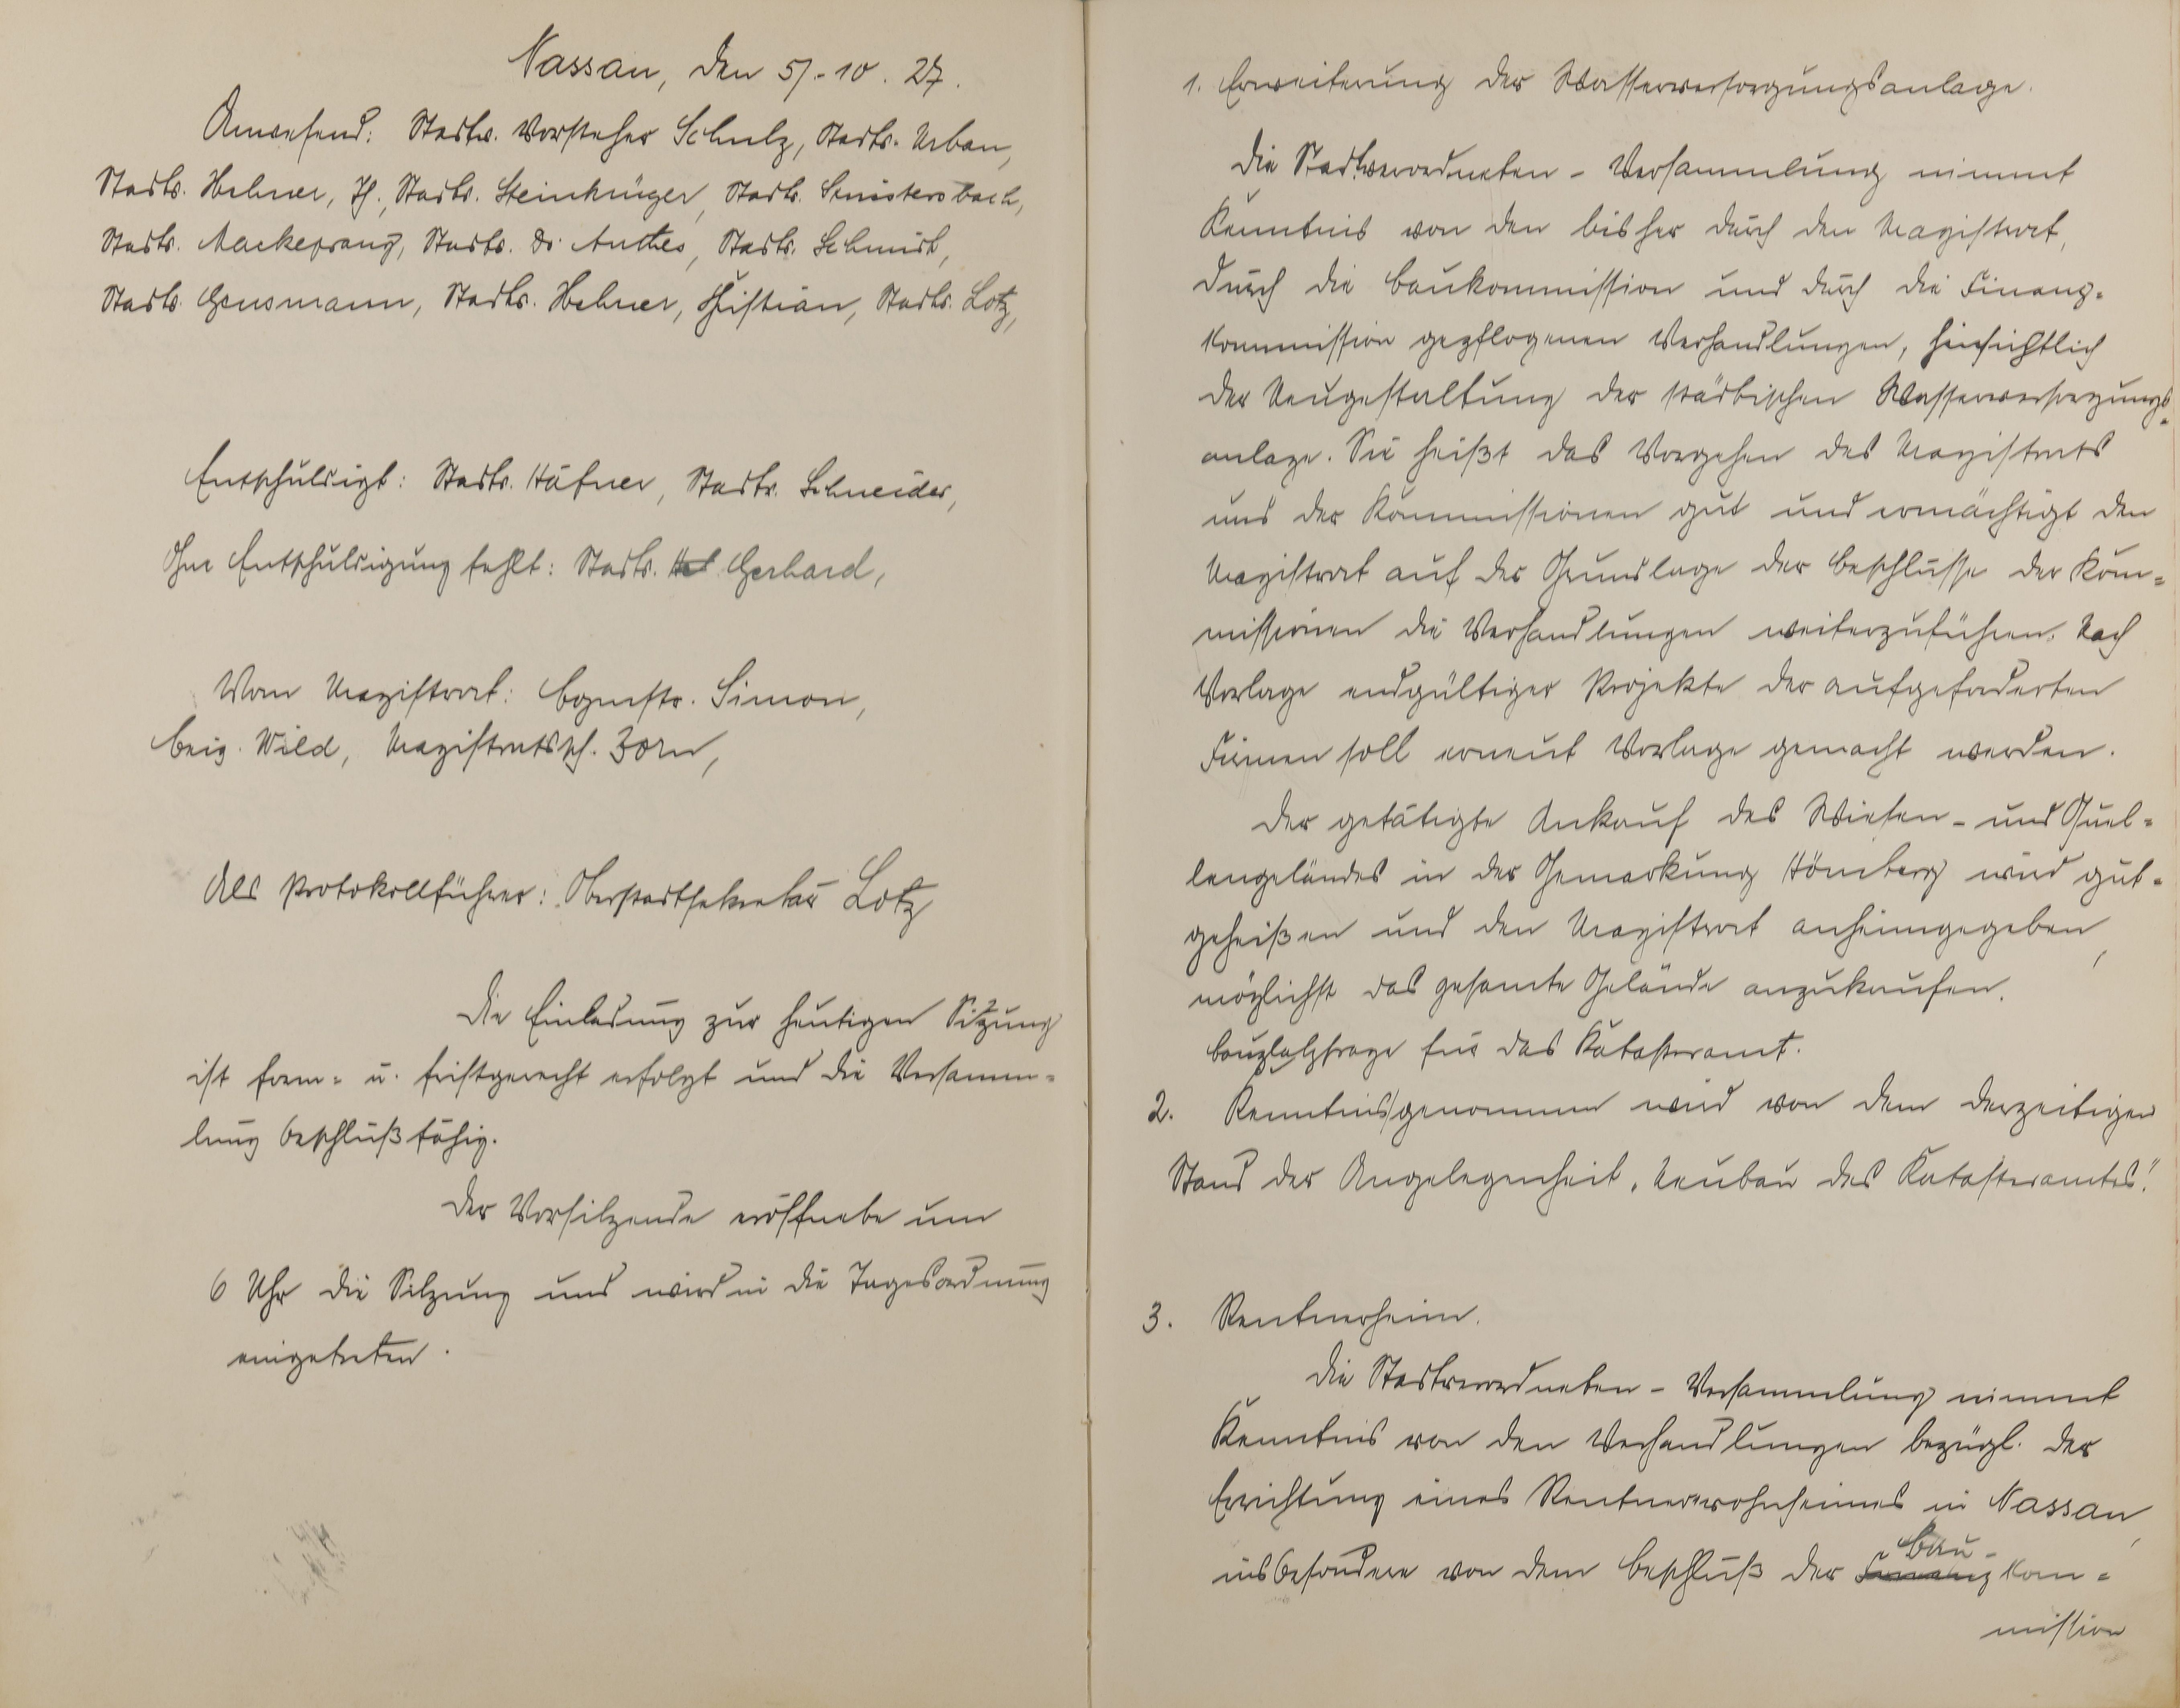 Nassau, den 5.-10. 27.
Anwesend: Stadtv. Vorsteher Schulz, Stadtv. Urban,
Stadtv. Hehner, Th., Stadtv. Steinkrüger, Stadtv.
Stadtv. Mackeprang, Stadtv. Dr. Anthes, Stadtv. Schmidt,
Stadtv. Gensmann, Stadtv. Hehner, Christian, Stadtv. Lotz,
Entschuldigt: Stadtv. Häfner, Stadtv. Schneider,
Ohne Entschuldigung fehlt: Stadtv. Gerhard,
Vom Magistrat: Bgmstr. Simon,
Beig. Wild, Magistratssch. Zorn,
Als Protokollführer: Oberstadtsekretär Lotz
Die Einladung zur heutigen Sitzung
ist form- u. fristgerecht erfolgt und die Versamm-
lung beschlußfähig.
Der Vorsitzende eröffnete um
6 Uhr die Sitzung und wird in die Tagesordnung
eingetreten.
1. Erweiterung der Wasserversorgungsanlage.
Die Stadtverordneten-Versammlung nimmt
Kenntnis von den bisher durch den Magistrat,
durch die Baukommission und durch die Finanz-
kommission gepflogenen Verhandlungen, hinsichtlich
der Neugestaltung der städtischen Wasserversorgungs-
anlage. Sie heißt das Vorgehen des Magistrats
und der Kommissionen gut und ermächtigt den
Magistrat auf der Grundlage der Beschlüsse der Kom-
missionen die Verhandlungen weiterzuführen. Nach
Vorlage endgültiger Projekte der aufgeforderten
Firmen soll erneut Vorlage gemacht werden.
Der getätigte Ankauf des Wiesen- und Quel-
lengeländes in der Gemarkung Hömberg wird gut-
geheißen und den Magistrat anheimgegeben,
möglichst das gesamte Gelände anzukaufen.
Bauplatzfrage für das Katasteramt.
2. Kenntnis genommen wird von dem derzeitigen
Stand der Angelegenheit „Neubau des Katasteramtes".
3. Rentnerheim.
Die Stadtverordneten-Versammlung nimmt
Kenntnis von den Verhandlungen bezügl. der
Errichtung eines Rentnerwohnheimes in Nassau,
insbesondere von dem Beschluß der Finanz Bau-kom-
mission